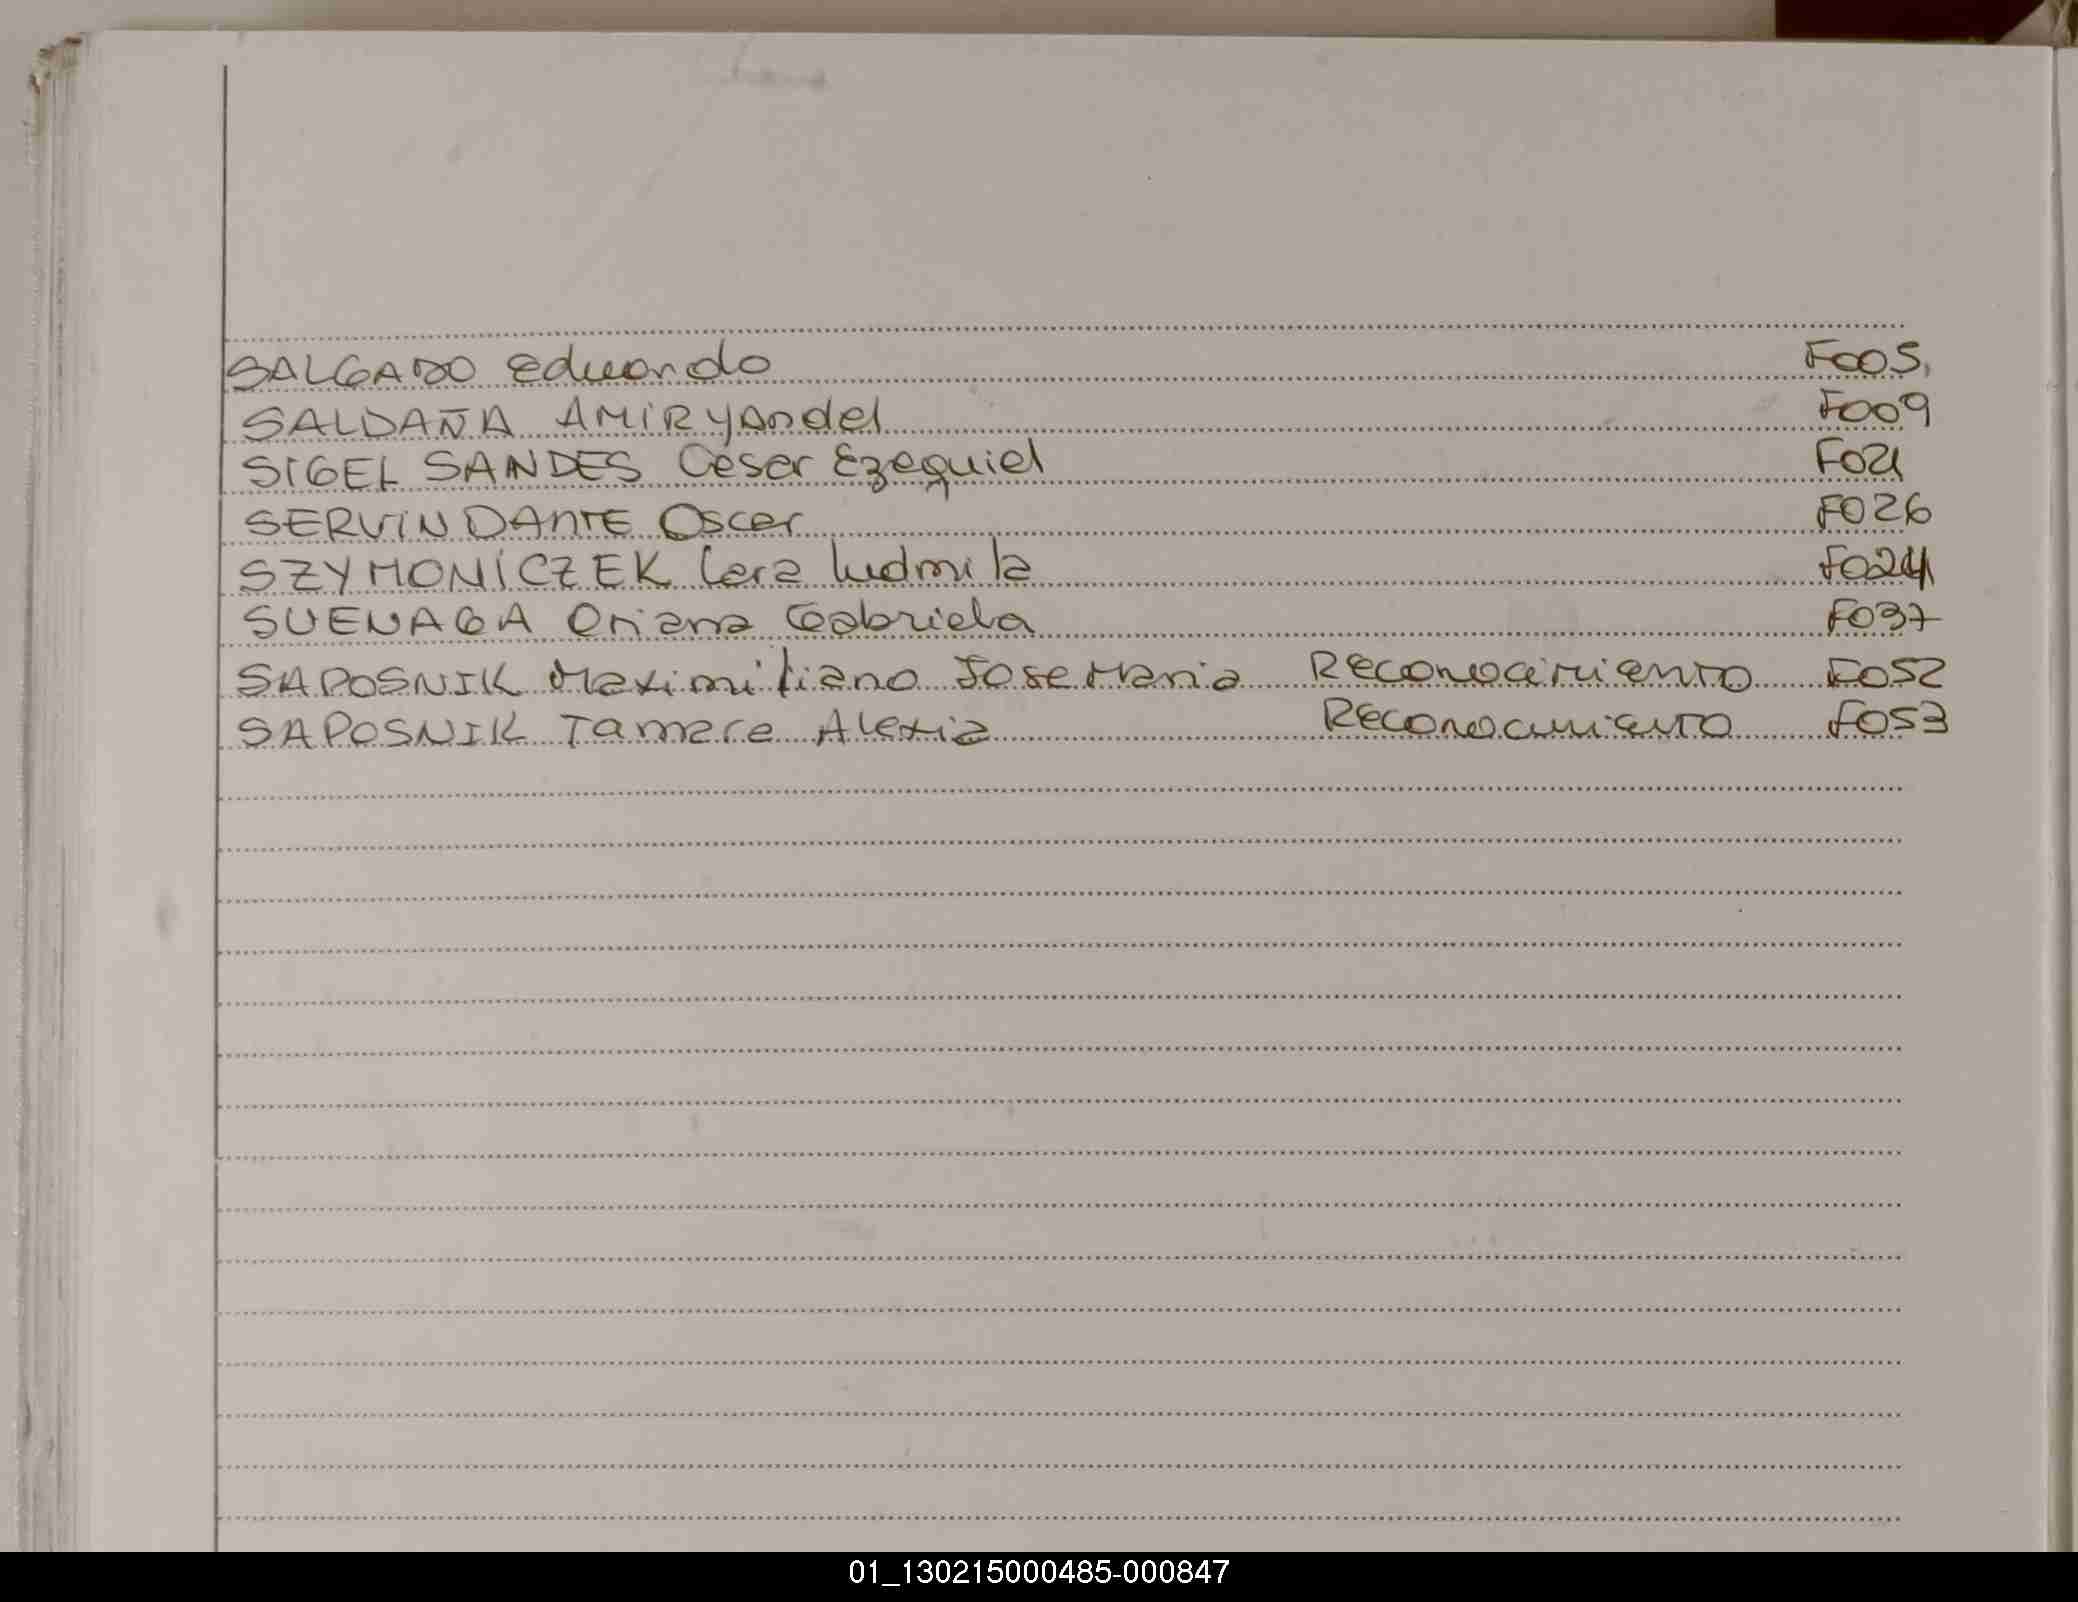 SALGADO Eduardo F005
SALDAÑA AMIR YAndel F009
SIGEL SANDES Cesar Ezequiel F021
SERVIN DANTE Oscar F026
SZYMONICZEK Lara Ludmila F024
SUENAGA Oriana Gabriela F037
SAPOSNIK Maximiliano Jose Maria Reconocimiento F052
SAPOSNIK Tamara Alexia Reconocimiento F053
01_130215000485-000847